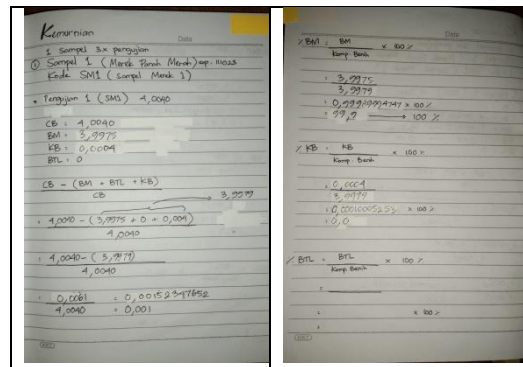 Kemurnian
Date
1 Sampel 3x pengujian
① Sampel 1 (Merek Panah Merah) exp. 111023
Kode SM1 (Sampel Merek 1)
• Pengujian 1 (SM1) 4,0040
CB = 4,0040
BM = 3,9975
KB = 0,0004
BTL = 0
CB - (BM + BTL + KB)
CB
3,9979
= 4,0040 - (3,9975 + 0 + 0,004)
4,0040
= 4,0040 - (3,9979)
4,0040
= 0,0061 = 0,00152347652
4,0040 = 0,001
Date
% BM = BM x 100 %
Komp. Benih
= 3,9975
3,9979
x 100 %
= 99,9 → 100 %
% KB = KB x 100 %
Komp. Benih
= 0,0004
3,9979
x 100 %
= 0,0
% BTL = BTL x 100 %
Komp Benih
=
= x 100 %
=